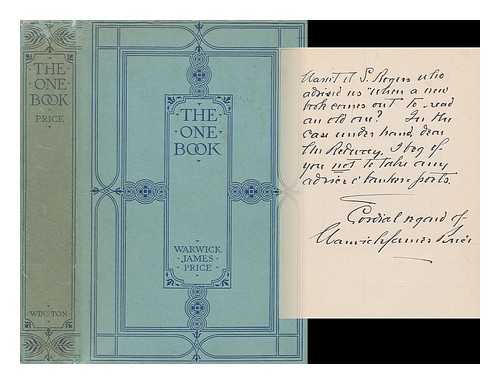 THE
ONE
BOOK
PRICE
WINSTON
THE
ONE
BOOK
WARWICK
JAMES
PRICE
Wasn't it S. Rogers who
advised us "when a new
book comes out to read
an old one"? In the
case under hand, dear
I beg of
you not to take any
advice o' banker-poets.
Cordial regard of
Warwick James Price